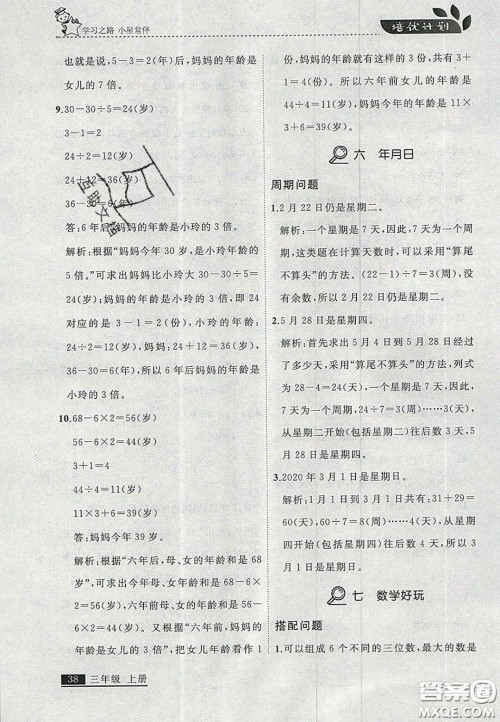 学习之路 小星常伴
培优计划
也就是说,5－3＝2(年)后,妈妈的年龄是
女儿的 7 倍。
9.30－30÷5＝24(岁)
3－1＝2
24÷2＝12(岁)
24＋12＝36(岁)
36－30＝6(年)
答:6 年后,妈妈的年龄是小玲的 3 倍。
解析:根据“妈妈今年 30 岁,是小玲年龄的
5 倍。”可求出妈妈比小玲大 30－30÷5＝
24(岁);妈妈的年龄是小玲的 3 倍,即 24
对应的是 3－1＝2(份),小玲的年龄:
24÷2＝12(岁),妈妈:24＋12＝36(岁),
36－30＝6(年),所以 6 年后妈妈的年龄是
小玲的 3 倍。
10.68－6×2＝56(岁)
56－6×2＝44(岁)
3＋1＝4
44÷4＝11(岁)
11×3＋6＝39(岁)
答:妈妈今年 39 岁。
解析:根据“六年后,母、女的年龄和是 68
岁”,可求出今年母、女的年龄和是 68－6×
2＝56(岁),六年前母、女的年龄和是 56－6×
2＝44(岁)。又根据“六年前,妈妈的年龄
是女儿的 3 倍”,把女儿年龄看作 1
份,妈妈的年龄就有这样的 3 份,一共是
3＋1＝4(份),所以六年前女儿的年龄是
44÷4＝11(岁),妈妈今年的年龄是 11×
3＋6＝39(岁)。
六 年月日
周期问题
1.2 月 22 日仍是星期二。
解析:一个星期是 7 天,因此,一个周期为 7
天,这类题在计算天数时,可以采用“算尾
不算头”的方法。(22－1)÷7＝3(周),没
有余数,所以 2 月 22 日仍是星期二。
2.5 月 28 日是星期四。
解析:首先求出从 5 月 4 日到 5 月 28 日经过
了多少天,采用“算尾不算头”的方法,列式
为 28－4＝24(天),一个星期是 7 天,也就是
一个周期为 7 天,24÷7＝3(周)……3(天),
从星期二开始(包括星期二)往后数 3 天,5
月 28 日是星期四。
3.2020 年 3 月 1 日是星期日。
解析:1 月 1 日到 3 月 1 日共有:31＋29＝
60(天),60÷7＝8(周)……4(天),从星期
四开始(包括星期四)往后数 4 天是星
期日。
七 数学好玩
搭配问题
1.可以组成 6 个不同的三位数,最大的数是
38 三年级 上册
答案圈
MXQE.COM